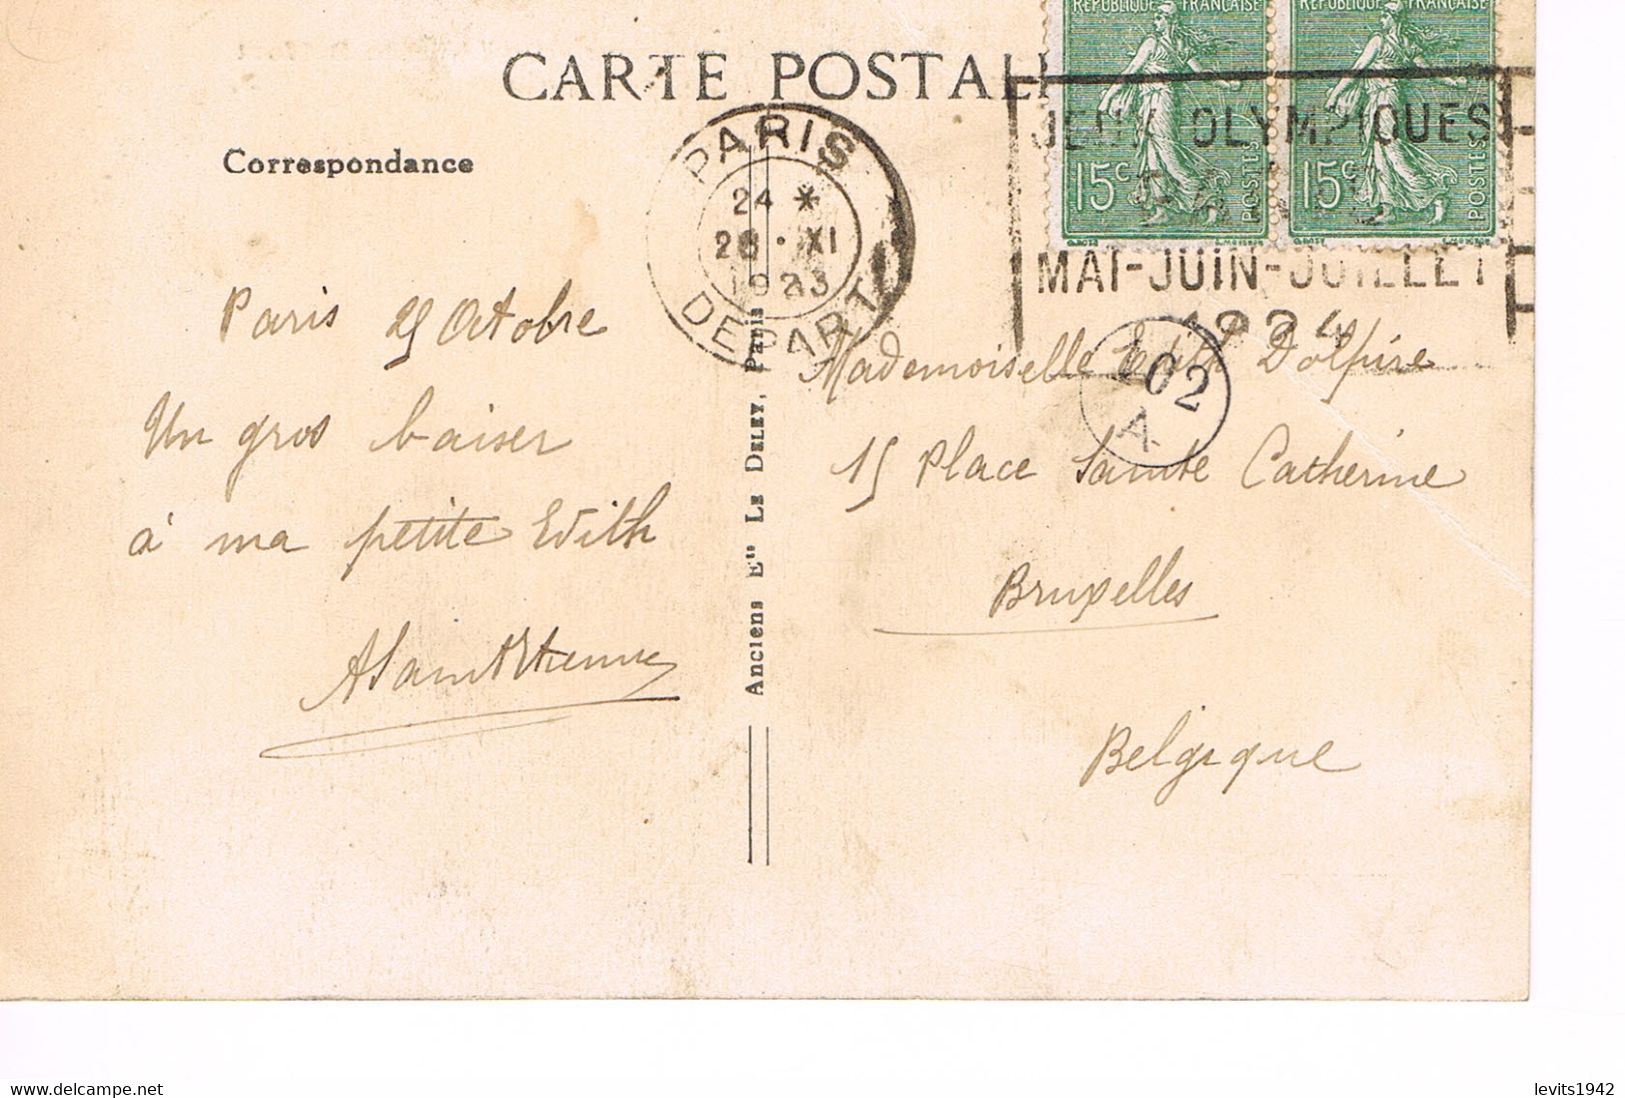 CARTE POSTALE
Correspondance
RÉPUBLIQUE FRANÇAISE
RÉPUBLIQUE FRANÇAISE
15c POSTES
15c POSTES
PARIS
24 *
28 · XI
1923
DEPART
JEUX OLYMPIQUES
PARIS
MAI-JUIN-JUILLET
1924
Paris 25 Octobre
Un gros baiser
à ma petite Edith
ASaintEtienne
Anciens Ets Le Deley, Paris
Mademoiselle Edith Dolpire
102
A
15 Place Sainte Catherine
Bruxelles
Belgique
levits1942